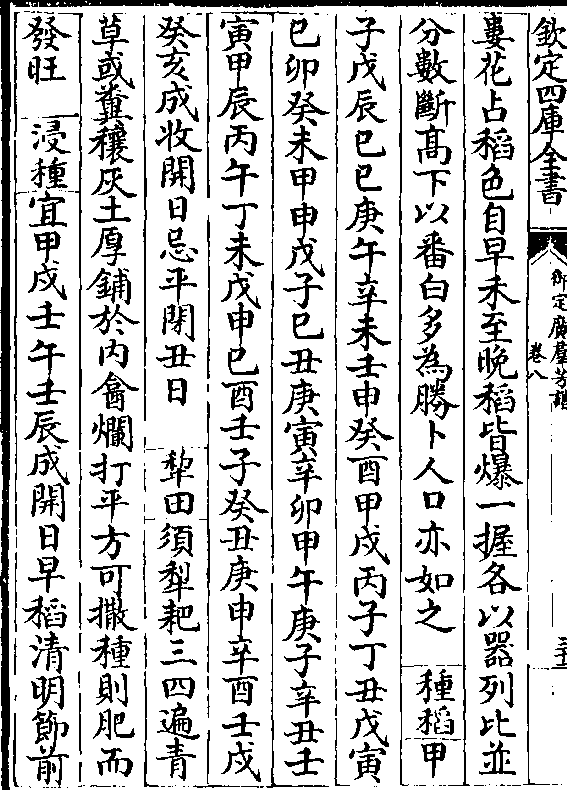 欽定四庫全書
御定廣羣芳譜
卷八
婁花占稻色自早禾至晚稻皆爆一握各以器列比並
分數斷髙下以番白多為勝卜人口亦如之　種稻甲
子戊辰巳巳庚午辛未壬申癸酉甲戌丙子丁丑戊寅
巳卯癸未甲申戊子巳丑庚寅辛卯甲午庚子辛丑壬
寅甲辰丙午丁未戊申巳酉壬子癸丑庚申辛酉壬戌
癸亥成收開日忌平閉丑日　犂田須犁耙三四遍青
草或糞穰灰土厚鋪於内罨爛打平方可撒種則肥而
發旺　浸種宜甲戌壬午壬辰成開日早稻清明節前